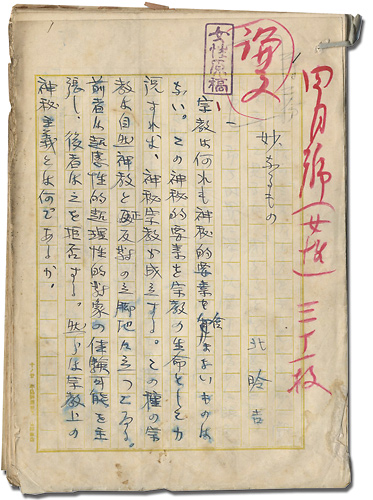 四月號(女性)
論文
女性原稿
妙なるもの
北昤吉
宗教は何れも神秘的要素を含まないものは
ない。この神秘的要素を宗教の生命として力
説すれば、神秘宗教が成立する。その種の宗
教は自然神教と正反對の立脚地に立つてゐる。
前者は超感性的超理性的對象の体験可能を主
張し、後者は之を拒否する。然らば宗教上の
神秘主義とは何であるか。